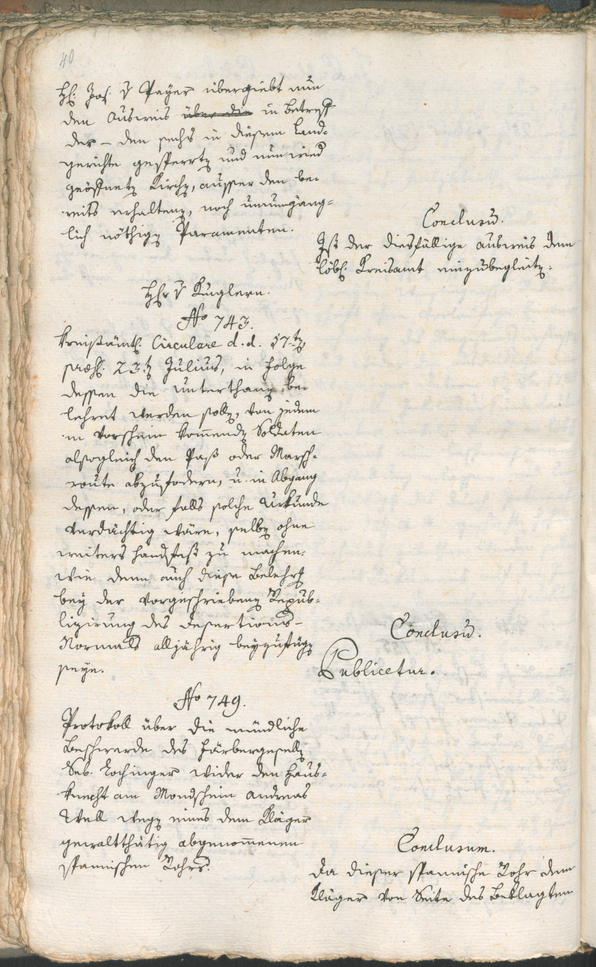 40
H: Jos: v Payer übergiebt nun
den Ausweis über die in Betreff
der – den sechs in diesem Land-
gerichte gesperrten und nun wied
geöffneten Kirchen, ausser den be-
reits erhaltenen, noch unumgäng-
lich nöthigen Paramenten.
Conclusū.
Ist der diesfällige Ausweis dem
löbl: Kreisamt einzubegleiten.
Hfr v Kuglern.
No 743.
Kreisämtl: Circulare d. d. 17ten
praes: 23ten Julius, in folge
dessen die unterthanen be-
lehret werden sollen, von jedem
in Vorschein kommenden Soldaten
alsogleich den Paß oder Marsch-
route abzufodern, u. in Abgang
dessen, oder falls solche Urkunde
verdächtig wäre, selben ohne
weiters handfest zu machen.
wie denn auch diese Belehrg
bey der vorgeschriebenen Repub-
lizirung des Desertions-
Normals alljährig beyzufügen
seye.
Conclusū.
Publicetur.
No 749.
Protokoll über die mündliche
Beschwerde des Färbergesellen
Seb: Lochinger wider den Haus-
knecht am Mondschein Andreas
Wall wegen eines dem Kläger
gewaltthätig abgenommenen
spanischen Rohrs.
Conclusum.
Da dieser spanische Rohr dem
Kläger von Seite des Beklagten